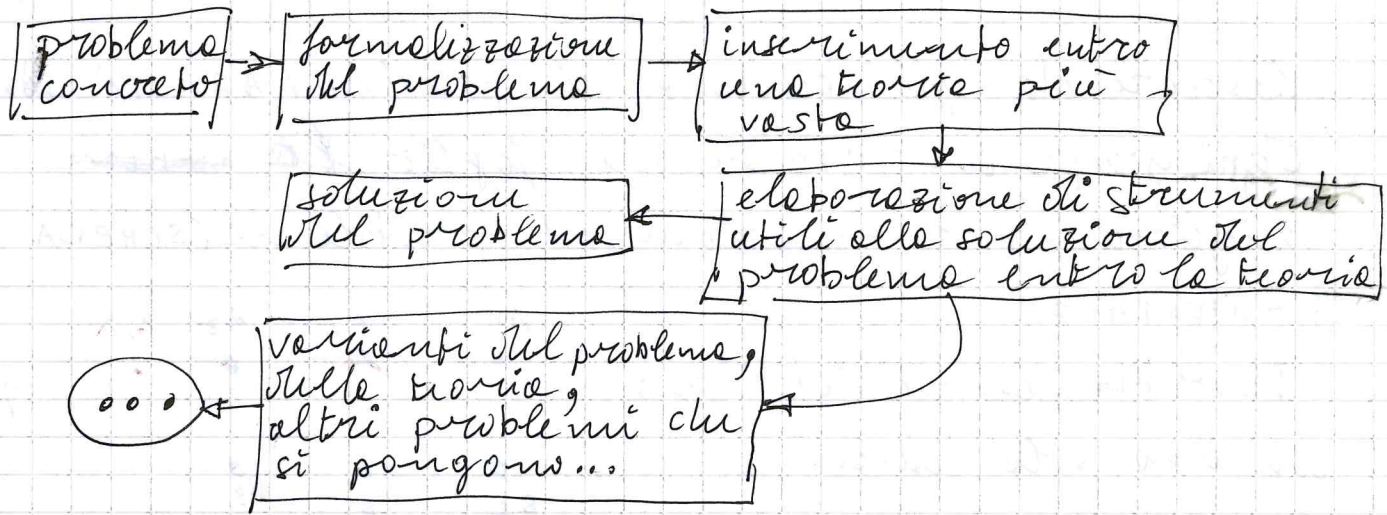 problema
concreto
formalizzazione
del problema
inserimento entro
una teoria più
vasta
elaborazione di strumenti
utili alla soluzione del
problema entro la teoria
soluzione
del problema
varianti del problema,
della teoria,
altri problemi che
si pongono...
...